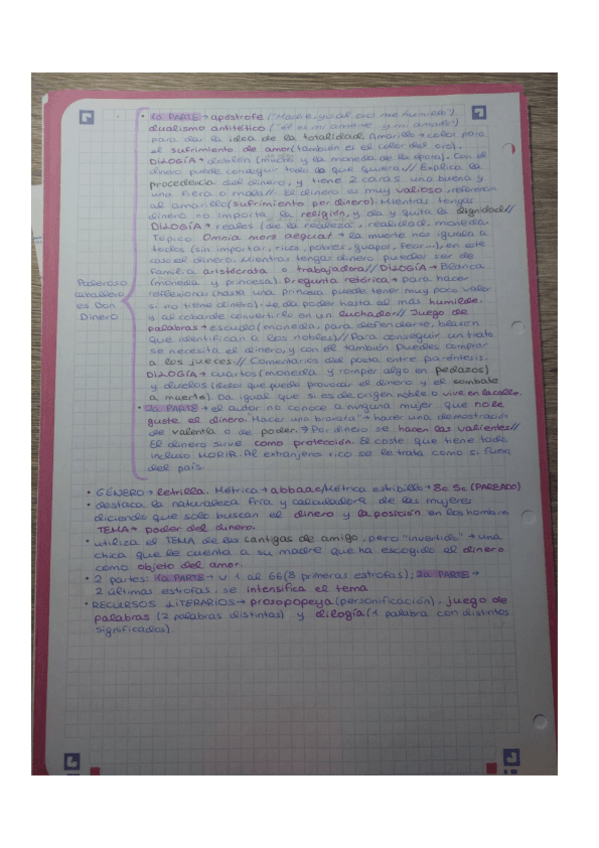 • 1a PARTE → apóstrofe ("Madre, yo al oro me humillo")
dualismo antitético ("él es mi amante y mi amado")
para dar la idea de la totalidad. Amarillo → color para
el sufrimiento de amor (también es el color del oro).
DILOGÍA → doblón (mucho y la moneda de la época). Con el
dinero puede conseguir todo lo que quiera // Explica la
procedencia del dinero, y tiene 2 caras una buena y
una fiera o mala // El dinero es muy valioso, referencia
al amarillo (sufrimiento por dinero). Mientras tengas
dinero no importa la religión, y da y quita la dignidad //
DILOGÍA → reales (de la realeza, realidad, moneda
Tópico Omnia mors aequat → la muerte nos iguala a
todos (sin importar, rico, pobres, guapos, feos...), en este
caso el dinero. Mientras tengas dinero puedes ser de
familia aristócrata o trabajadora // DILOGÍA → Blanca
(moneda y princesa). Pregunta retórica → para hacer
reflexionar (hasta una princesa puede tener muy poco valor
si no tiene dinero). Se da poder hasta al más humilde.
y al cobarde convertirlo en un luchador // Juego de
palabras → escudo (moneda, para defenderse, blasón
que identifican a los nobles) // Para conseguir un trato
se necesita el dinero, y con él también puedes comprar
a los jueces // Comentarios del poeta entre paréntesis.
DILOGÍA → cuartos (moneda y romper algo en pedazos)
y duelos (dolor que puede provocar el dinero y el combate
a muerte). Da igual que si es de origen noble o vive en la calle.
Poderoso
caballero
es Don
Dinero
• 2a PARTE → el autor no conoce a ninguna mujer que no le
guste el dinero. "Hacer una bravata" → hacer una demostración
de valentía o de poder. → Por dinero se hacen las valientes //
El dinero sirve como protección. El coste que tiene todo
incluso MORIR. Al extranjero rico se le trata como si fuera
del país.
• GÉNERO → letrilla. Métrica → abbaac / Métrica estribillo → 8c 8c (PAREADO)
• destaca la naturaleza fría y calculadora de las mujeres
diciendo que solo buscan el dinero y la posición en los hombres
TEMA → poder del dinero.
• utiliza el TEMA de las cantigas de amigo, pero "invertido" → una
chica que le cuenta a su madre que ha escogido el dinero
como objeto del amor.
• 2 partes: 1a PARTE → v. 1 al 66 (8 primeras estrofas); 2a PARTE →
2 últimas estrofas, se intensifica el tema
• RECURSOS LITERARIOS → prosopopeya (personificación), juego de
palabras (2 palabras distintas) y dilogía (1 palabra con distintos
significados).